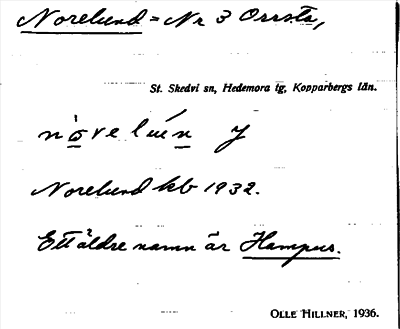 Norelund = Nr 3 Orrsta,
St. Skedvi sn, Hedemora tg, Kopparbergs län.
nòvelún y
Norelund kb 1932.
Ett äldre namn är Hampus.
OLLE HILLNER, 1936.